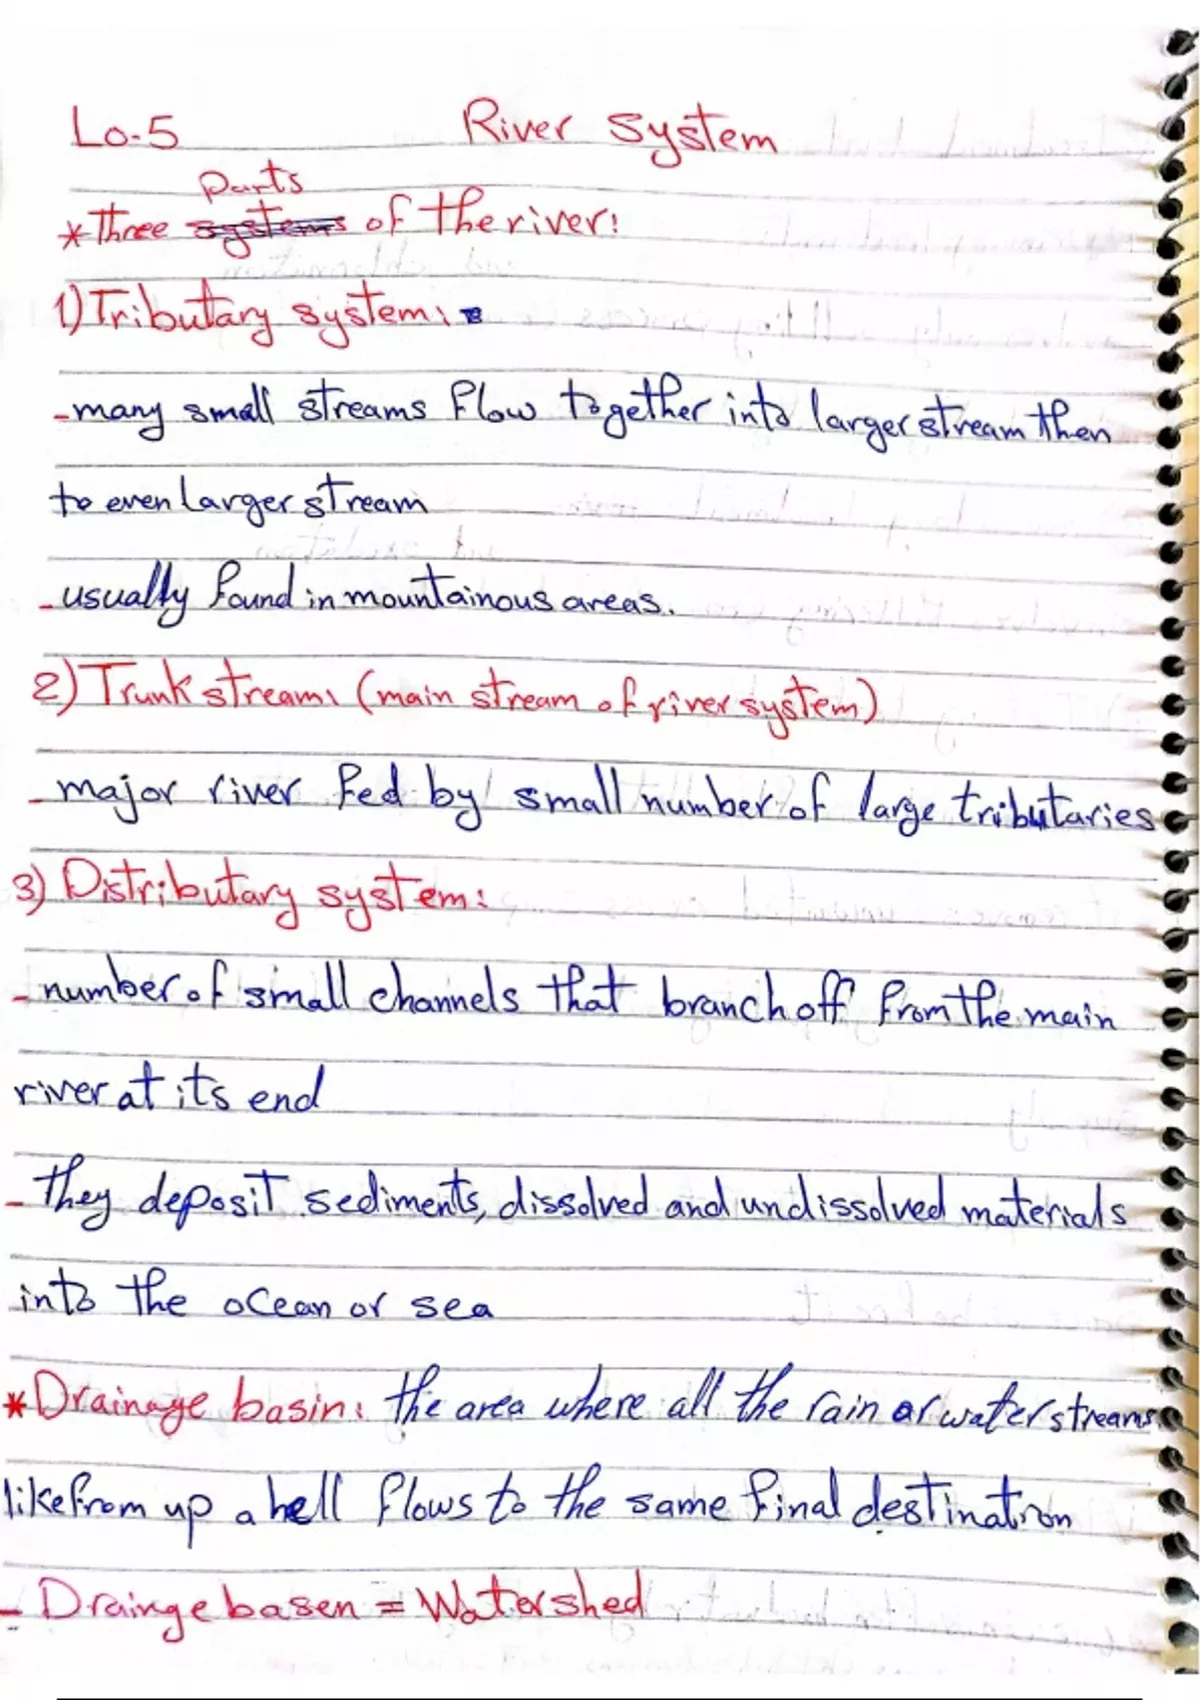 Lo-5 River system
parts
* Three systems of the river:
1) Tributary system:
- many small streams flow together into larger stream then
to even larger stream
- usually found in mountainous areas.
2) Trunk stream: (main stream of river system)
- major river fed by small number of large tributaries
3) Distributary system:
- number of small channels that branch off from the main
river at its end
- they deposit sediments, dissolved and undissolved materials
into the ocean or sea
* Drainage basin: the area where all the rain or water streams
like from up a hell flows to the same final destination
- Drainge basen = Watershed